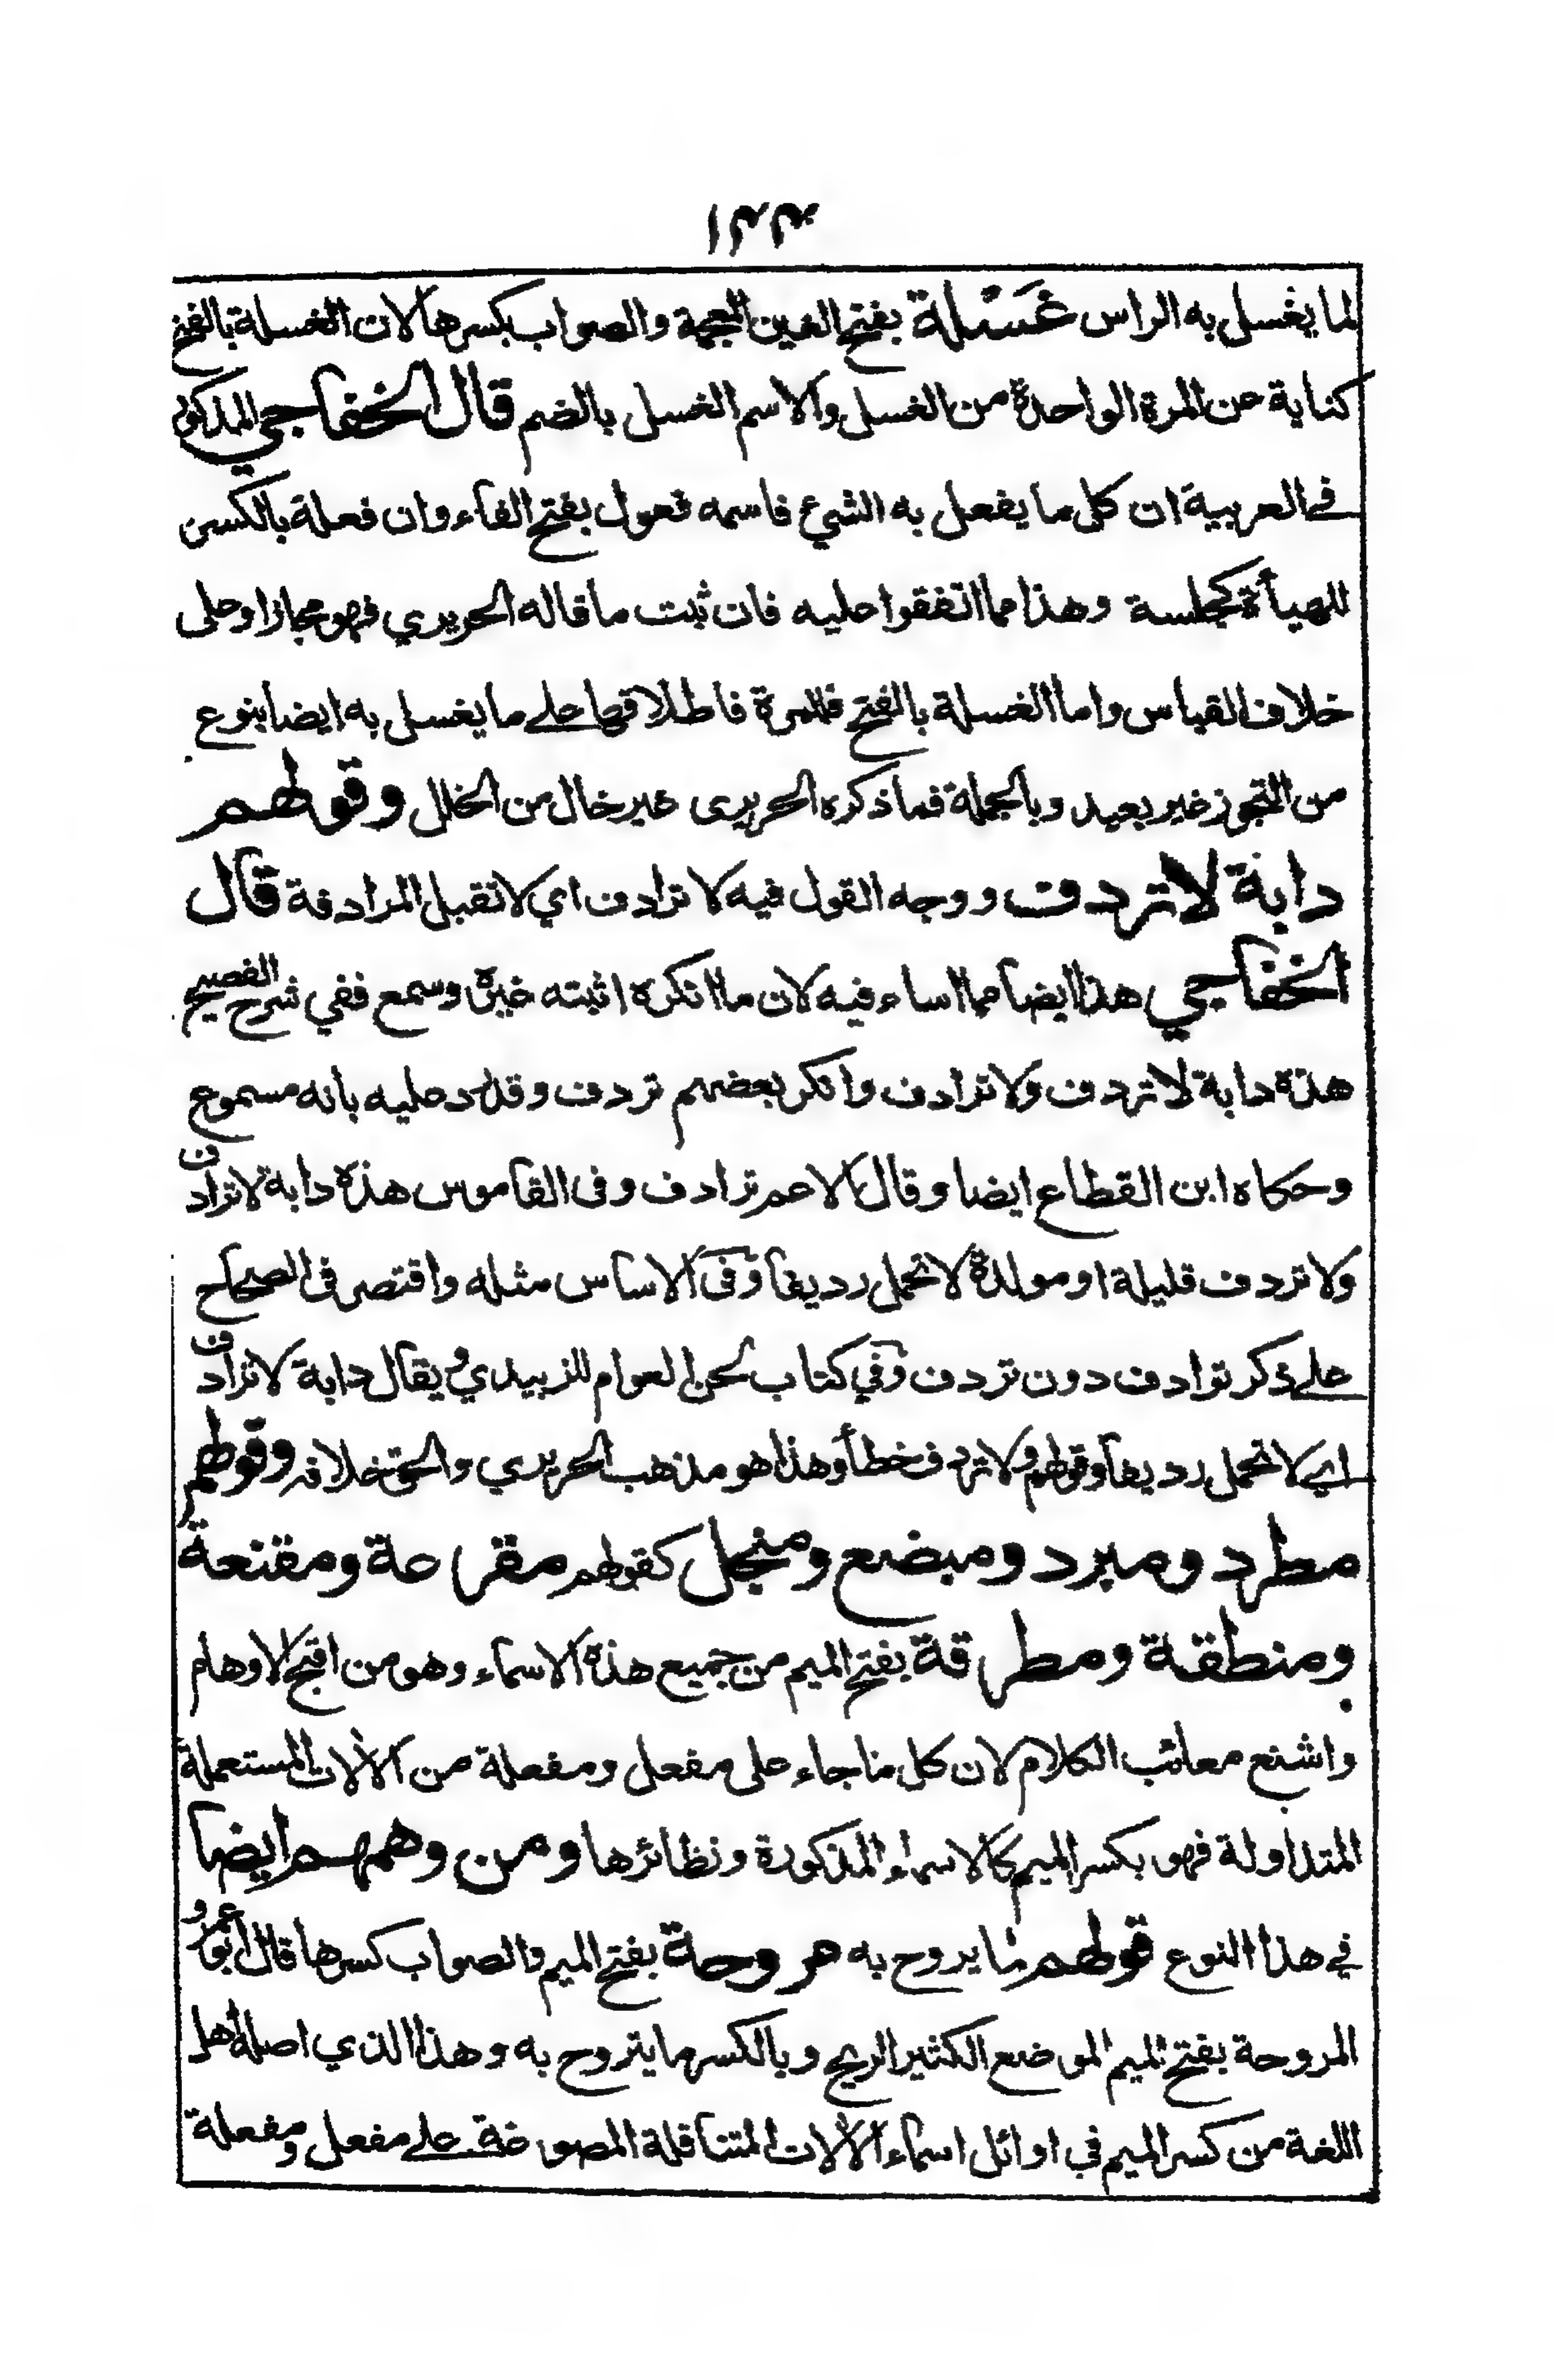 لما يغسل به الراس غَسْلة بفتح الغين المعجمة والصواب بكسرها لان الغسلة بالفتح
كناية عن المرة الواحدة من الغسل والاسم الغسل بالضم قال الخفاجي المذكور
في العربية ان كل ما يفعل به الشيء فاسمه فعول بفتح الفاء وان فعلة بالكسر
للهيأة كجلسة وهذا مما اتفقوا عليه فان ثبت ما قاله الحريري فهو مجاز او على
خلاف القياس واما الغسلة بالفتح فللمرة فاطلاقها على ما يغسل به ايضا بنوع
من التجوز غير بعيد وبالجملة فما ذكره الحريرى غير خال من الخلل وقولهم
دابة لا تردف ووجه القول فيه لا ترادف اي لا تقبل المرادفة قال
الخفاجي هذا ايضا مما اساء فيه لان ما انكره اثبته غيره وسمع ففي شرح الفصيح
هذه دابة لا تردف ولا ترادف وانكر بعضهم تردف وقد رد عليه بانه مسموع
وحكاه ابن القطاع ايضا وقال الاعم ترادف وفى القاموس هذه دابة لا ترادف
ولا تردف قليلة او مولدة لا تحمل رديفا وفى الاساس مثله واقتصر فى الصحاح
على ذكر ترادف دون تردف وفي كتاب لحن العوام للزبيدي ويقال دابة لا ترادف
اي لا تحمل رديفا وقولهم ولا تردف خطأ وهذا هو مذهب الحريري والحق خلافه وقولهم
مطرد ومبرد ومبضع ومنجل كقولهم مقرعة ومقنعة
ومنطقة ومطرقة بفتح الميم من جميع هذه الاسماء وهو من اقبح الاوهام
واشنع معائب الكلام لان كل ما جاء على مفعل ومفعلة من الآلات المستعملة
المتداولة فهو بكسر الميم كالاسماء المذكورة ونظائرها ومن وهمهم ايضا
في هذا النوع قولهم لما يروح به مروحة بفتح الميم والصواب كسرها قال ابو عمرو
المروحة بفتح الميم الموضع الكثير الريح وبالكسر ما يتروح به وهذا الذي اصله أهل
اللغة من كسر الميم في اوائل اسماء الآلات المتناقلة المصوغة على مفعل ومفعلة